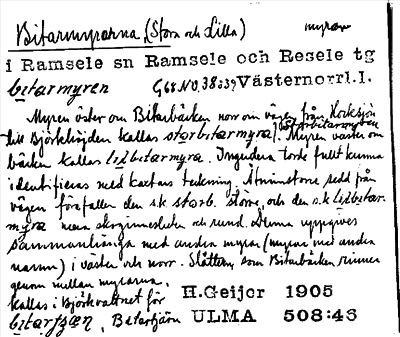 Bitarmyrarna (Stora och Lilla) myrar
i Ramsele sn Ramsele och Resele tg
bitarmyren G68 NO, 38:39 Västernorrl.l.
Myren öster om Bitarbäcken norr om vägen från
till Björkhöjden kallas storbitarmyra / storbitarmyren. Myren väster om
bäcken kallas lilbitarmyra. Ingendera torde fullt kunna
identifieras med kartans teckning. Åtminstone sedd från
vägen förefaller den s.k. storb. större, och den s.k. lilbitar-
myra mera skogsinnesluten och rund. Denna uppgives
sammanhänga med andra myrar (myrar med andra
namn) i väster och norr. Slåtter, som Bitarbäcken rinner
genom mellan myrarna,
kallas i Björkvattnet för H.Geijer 1905
Betartjärn ULMA 508:43